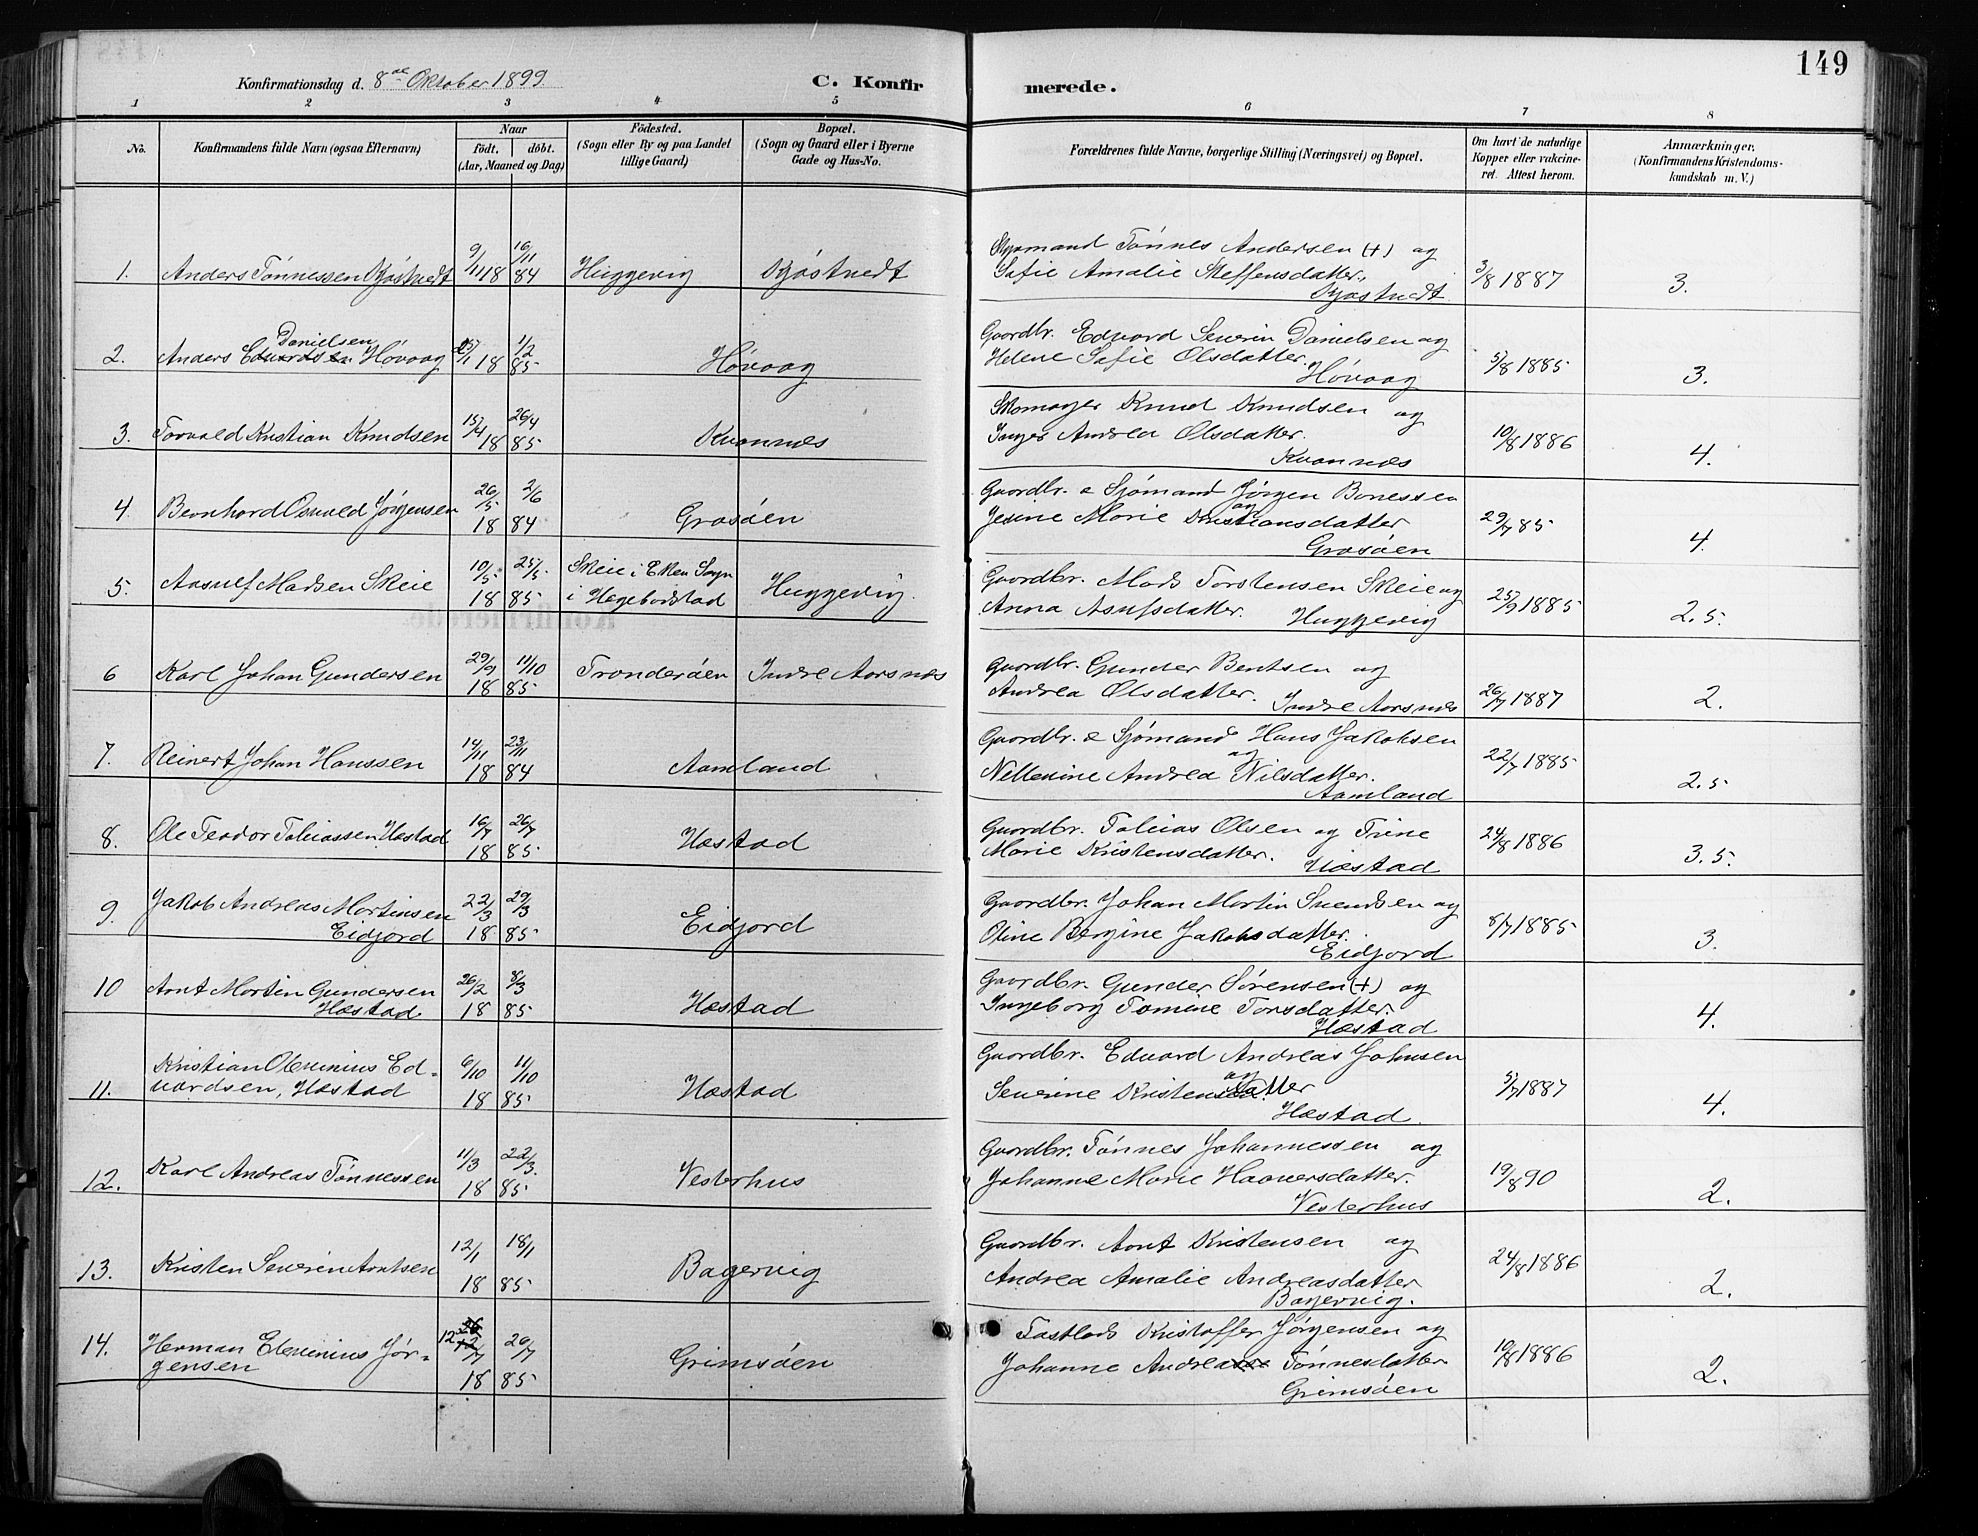 149
Konfirmationsdag d. 8de Oktober 1899.
C. Konfirmerede.
1 2 3 4 5 6 7 8
No.
Konfirmandens fulde Navn (ogsaa Efternavn)
Naar
født. døbt.
(Aar, Maaned og Dag)
Födested.
(Sogn eller By og paa Landet
tillige Gaard)
Bopæl.
(Sogn og Gaard eller i Byerne
Gade og Hus-No.
Forældrenes fulde Navne, borgerlige Stilling (Næringsvei) og Bopæl.
Om havt de naturlige
Kopper eller vakcine-
ret. Attest herom.
Anmærkninger.
(Konfirmandens Kristendoms-
kundskab m. V.)
1. Anders Tønnessen 9/11 18 16/11 84 Huggevig
Tønnes Andersen (+) og
Sofie Amalie Steffensdatter.
3/8 1887 3.
2. Anders Danielsen Høvaag /1 18 1/2 85 Høvaag
Gaardbr. Eduard Severin Danielsen og
Helene Sofie Olsdatter.
Høvaag
5/8 1885 3.
3. Torvald Kristian Knudsen 15/4 18 26/4 85 Kvannes
Skomager Knud Knudsen og
Inger Andrea Olsdatter.
Kvannes
10/8 1886 4.
4 Bernhard Osvald Jørgensen 26/5 18 2/6 84 Grosøen
Gaardbr. & Sjømand Jørgen Bonessen
og
Jesine Marie Kristiansdatter
Grosøen
29/7 85 4.
5. Aasulf Madsen Skeie 10/5 18 25/5 85 Skeie i Eken Sogn
i Hegebostad Huggevig.
Gaardbr. Mads Torstensen Skeie og
Anna Asufsdatter. Huggevig
25/9 1885 2.5.
6 Karl Johan Gundersen 29/9 18 11/10 85 Tronderøen Indre Aarsnes
Gaardbr. Gunder Bentsen og
Andrea Olsdatter. Indre Aarsnes
26/7 1887 2.
7. Reinert Johan Hanssen 14/11 18 23/11 84 Aamland
Gaardbr. & Sjømand Hans Jakobsen
og
Nellenine Andrea Nilsdatter.
Aamland
22/7 1885 2.5
8. Ole Teodor Tobiassen Hæstad 16/7 18 26/7 85 Hæstad
Gaardbr. Tobias Olsen og Trine
Marie Kristensdatter. Hæstad
24/8 1886 3.5.
9. Jakob Andreas Martinsen
Eidjord 22/3 18 29/3 85 Eidjord
Gaardbr. Johan Martin Svendsen og
Oline Bergine Jakobsdatter.
Eidjord
8/7 1885 3.
10 Arnt Martin Gundersen
Hæstad 26/2 18 8/3 85 Hæstad
Gaardbr. Gunder Sørensen (+) og
Ingeborg Tomine Torsdatter.
Hæstad
4.
11. Kristian Olevinius Ed-
vardsen, Hæstad 6/10 18 11/10 85 Hæstad
Gaardbr. Eduard Andreas Johnsen
og
Severine Kristensdatter
Hæstad.
5/7 1887 4.
12. Karl Andreas Tønnessen 11/3 18 22/3. 85 Vesterhus
Gaardbr. Tønnes Johannessen og
Johanne Marie Haaversdatter.
Vesterhus
19/8 90 2.
13. Kristen Severin Arntsen 12/1 18 18/1 85 Bagervig
Gaardbr. Arnt Kristensen og
Andrea Amalie Andreasdatter
Bagervig.
24/8 1886 2.
14. Herman Elevinius Jør-
gensen 12/7 18 26/7 85 Grimsøen
Kristoffer Jørgensen og
Johanne Andrea Tønnesdatter
Grimsøen
10/8 1886 2.